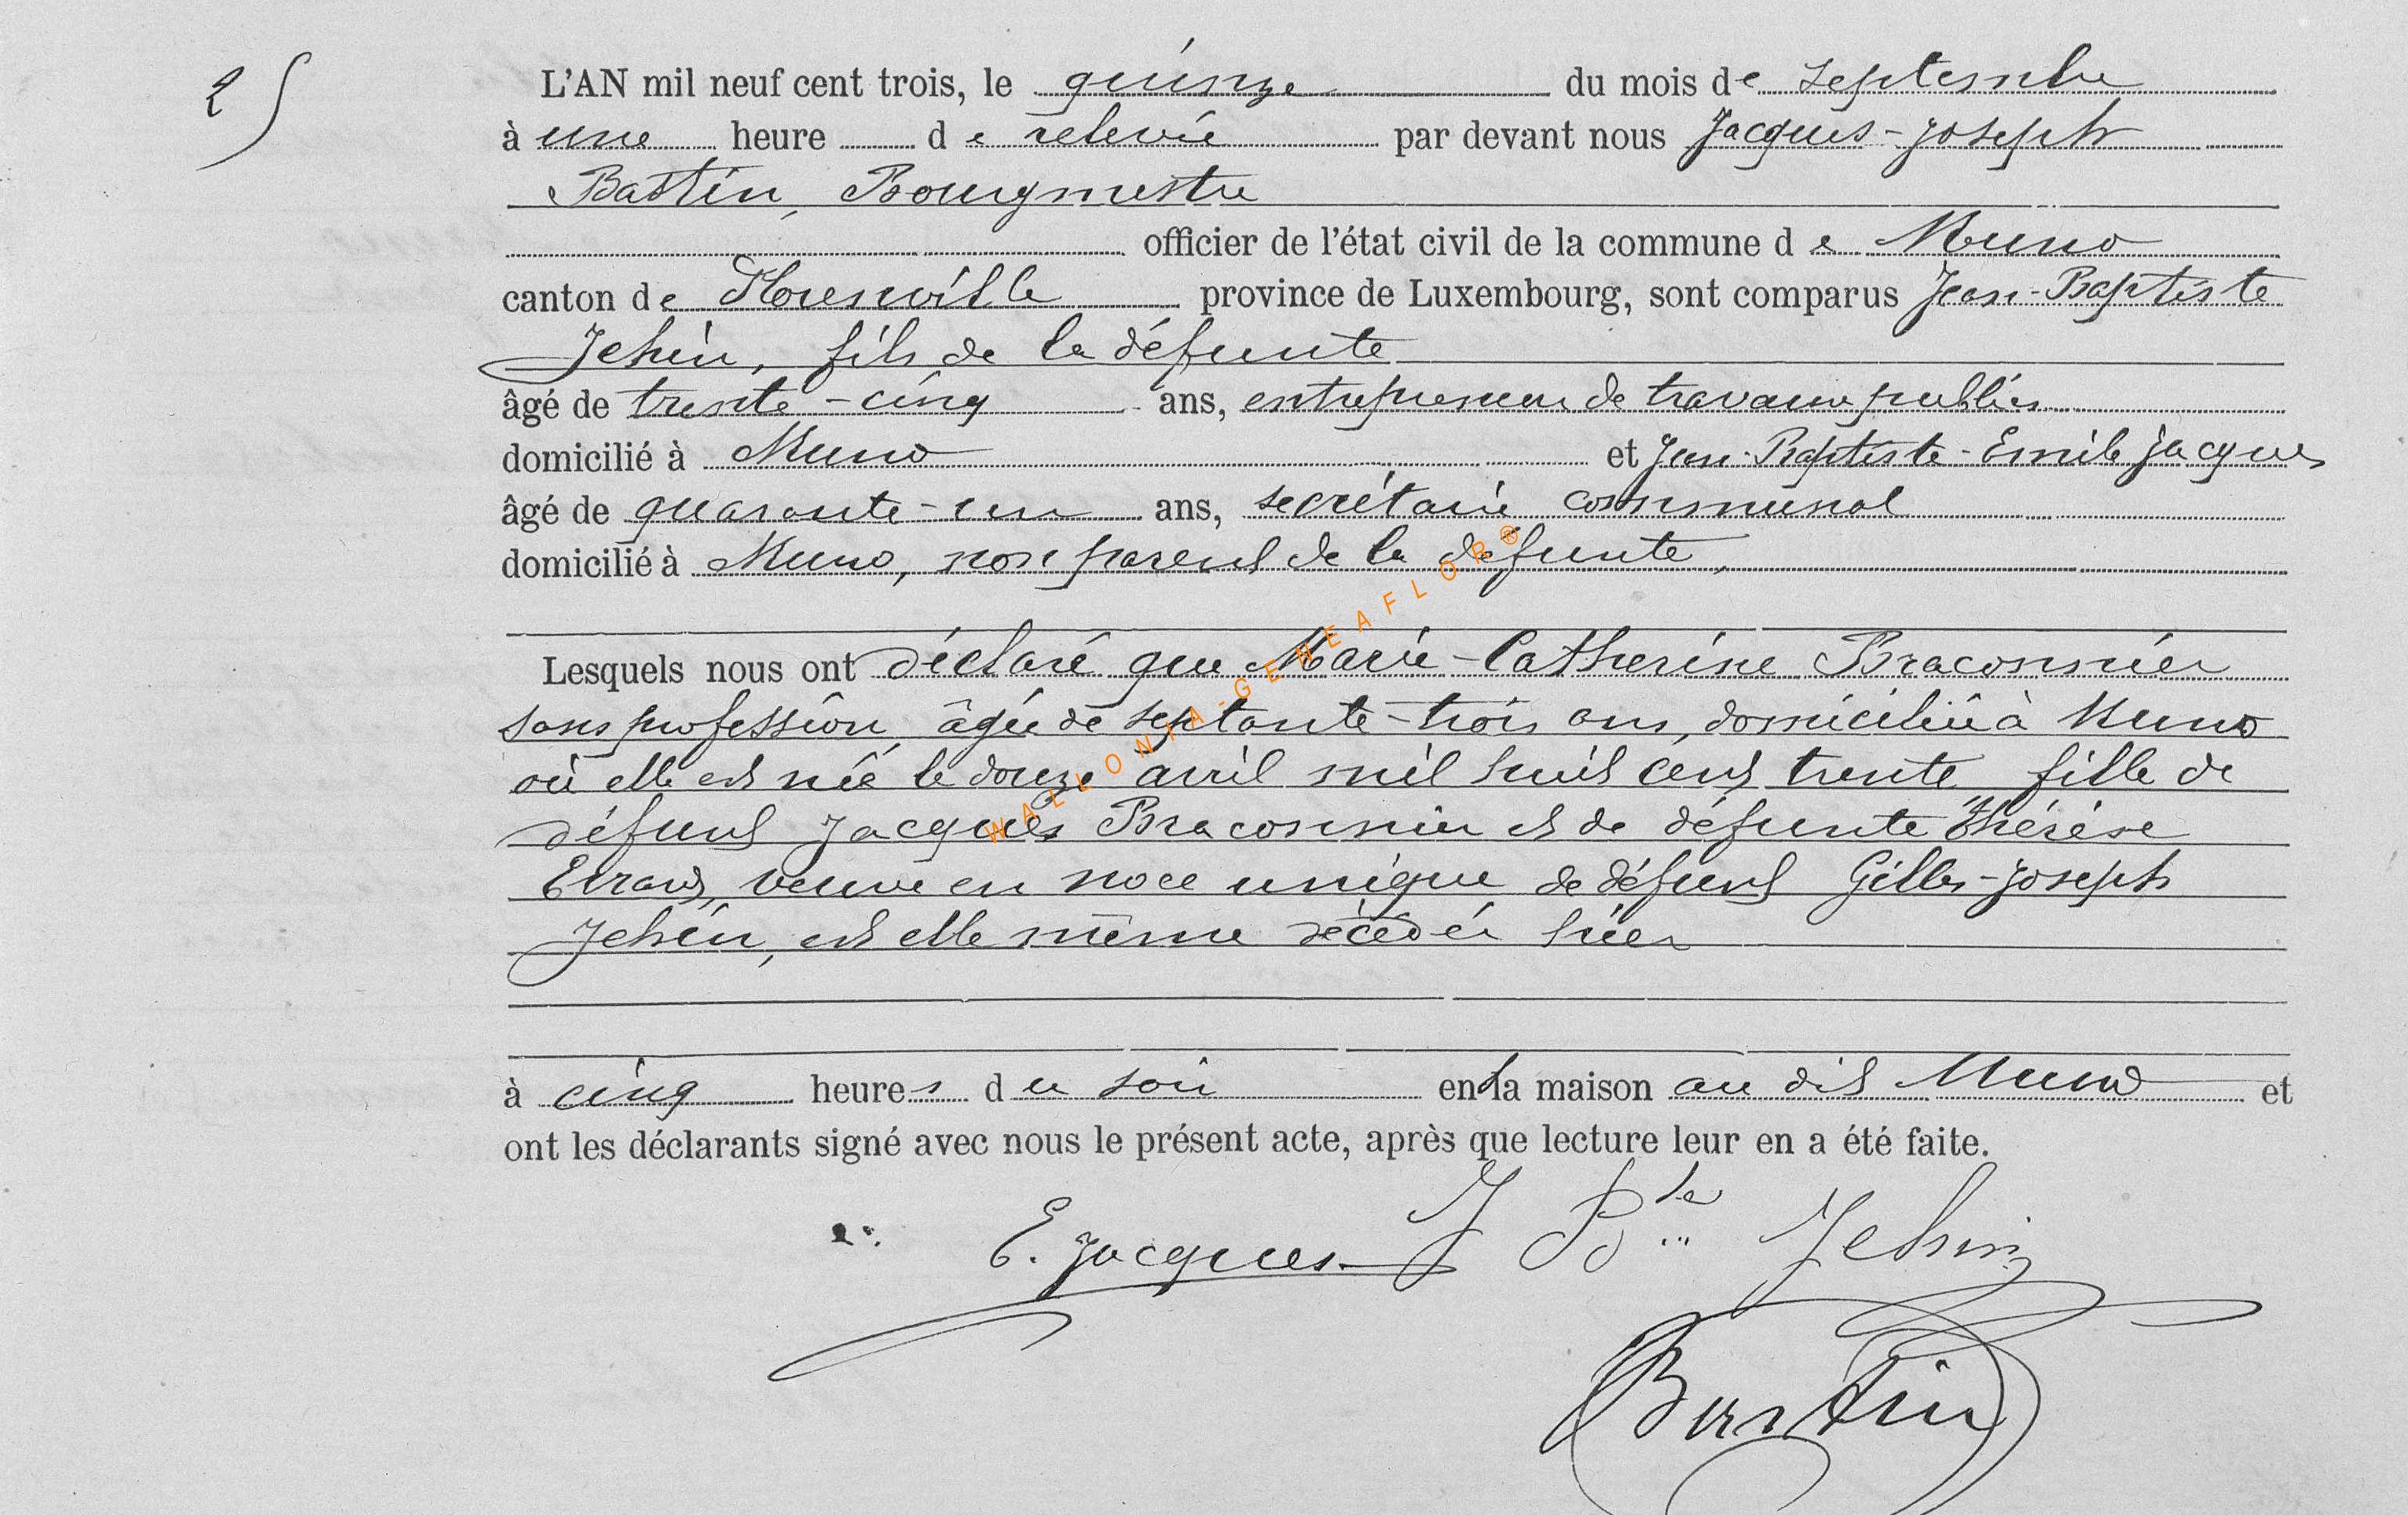 25
L'AN mil neuf cent trois, le quinze du mois de septembre
à une heure de relevée par devant nous Jacques-Joseph
Bastin, Bourgmestre
officier de l'état civil de la commune de Muno
canton de Florenville province de Luxembourg, sont comparus Jean-Baptiste
Jehin, fils de la défunte
âgé de trente-cinq ans, entrepreneur de travaux publics
domicilié à Muno et Jean-Baptiste-Emile Jacques
âgé de quarante-un ans, secrétaire communal
domicilié à Muno, non parent de la défunte,
Lesquels nous ont déclaré que Marie-Catherine Braconnier
sans profession, âgée de septante-trois ans, domiciliée à Muno
où elle est née le douze avril mil huit cent trente, fille de
défunt Jacques Braconnier et de défunte Thérèse
veuve en noce unique de défunt Gilles-Joseph
Jehin, est elle même décédée hier
à cinq heures du soir en sa maison au dit Muno et
ont les déclarants signé avec nous le présent acte, après que lecture leur en a été faite.
E. Jacques J Bte Jehin
Bastin
WALLONIA-GENEAFLOR®